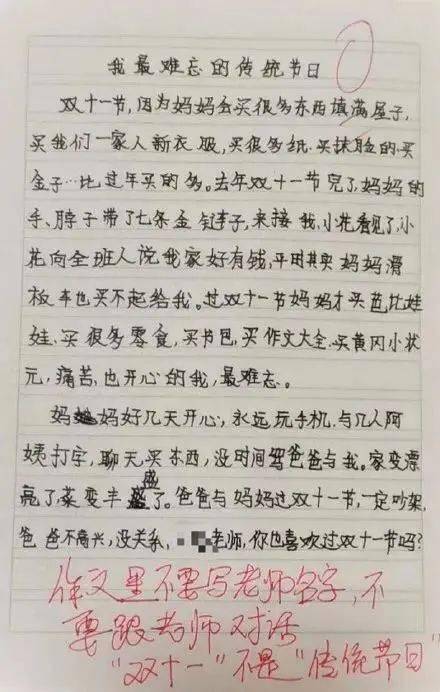 我最难忘的传统节日
双十一节，因为妈妈会买很多东西填满屋子，
买我们一家人新衣服，买很多纸、买抹脸的、买
金子…比过年买的多。去年双十一节完了，妈妈的
手、脖子带了七条金链子，来接我，小花看见了，小
花向全班人说我家好有钱，平时其实妈妈滑
板车也买不起给我。过双十一节妈妈才买芭比娃
娃、买很多零食，买书包，买作文大全、买黄冈小状
元，痛苦也开心的我，最难忘。
妈妈好几天开心，永远玩手机，与几人阿
姨打字，聊天买东西，没时间骂爸爸与我。家变漂
亮了，菜变丰盛了。爸爸与妈妈过双十一节，一定吵架，
爸爸不高兴，没关系，老师，你也喜欢过双十一节吗？
作文里不要写老师名字，不
要跟老师对话
"双十一"不是"传统节日"